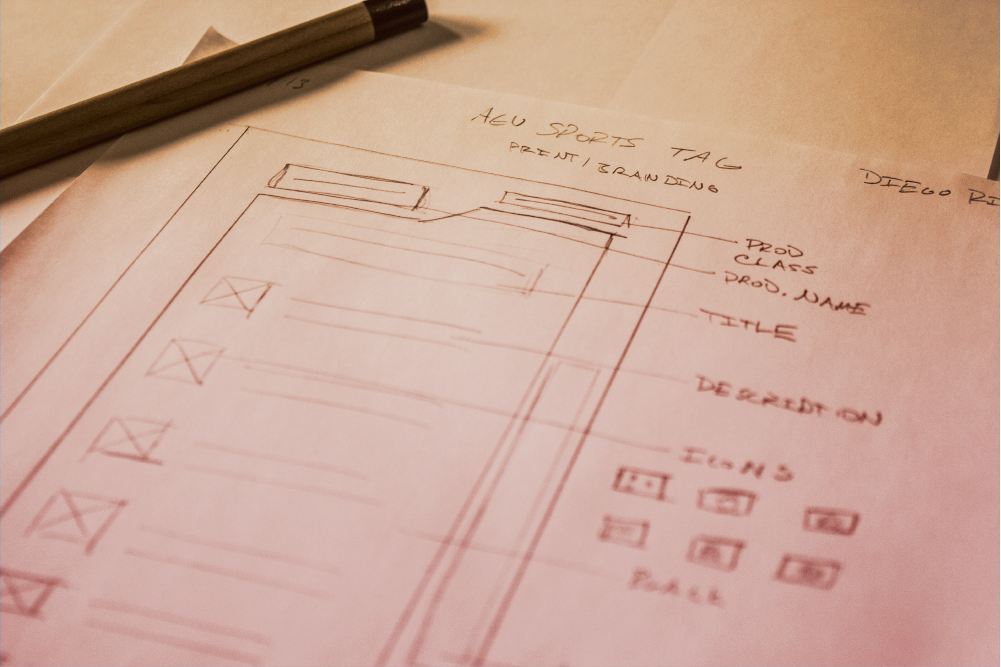 AGU SPORTS TAG
PRINT/BRANDING
DIEGO RI
PROD
CLASS
PROD. NAME
TITLE
DESCRIPTION
ICONS